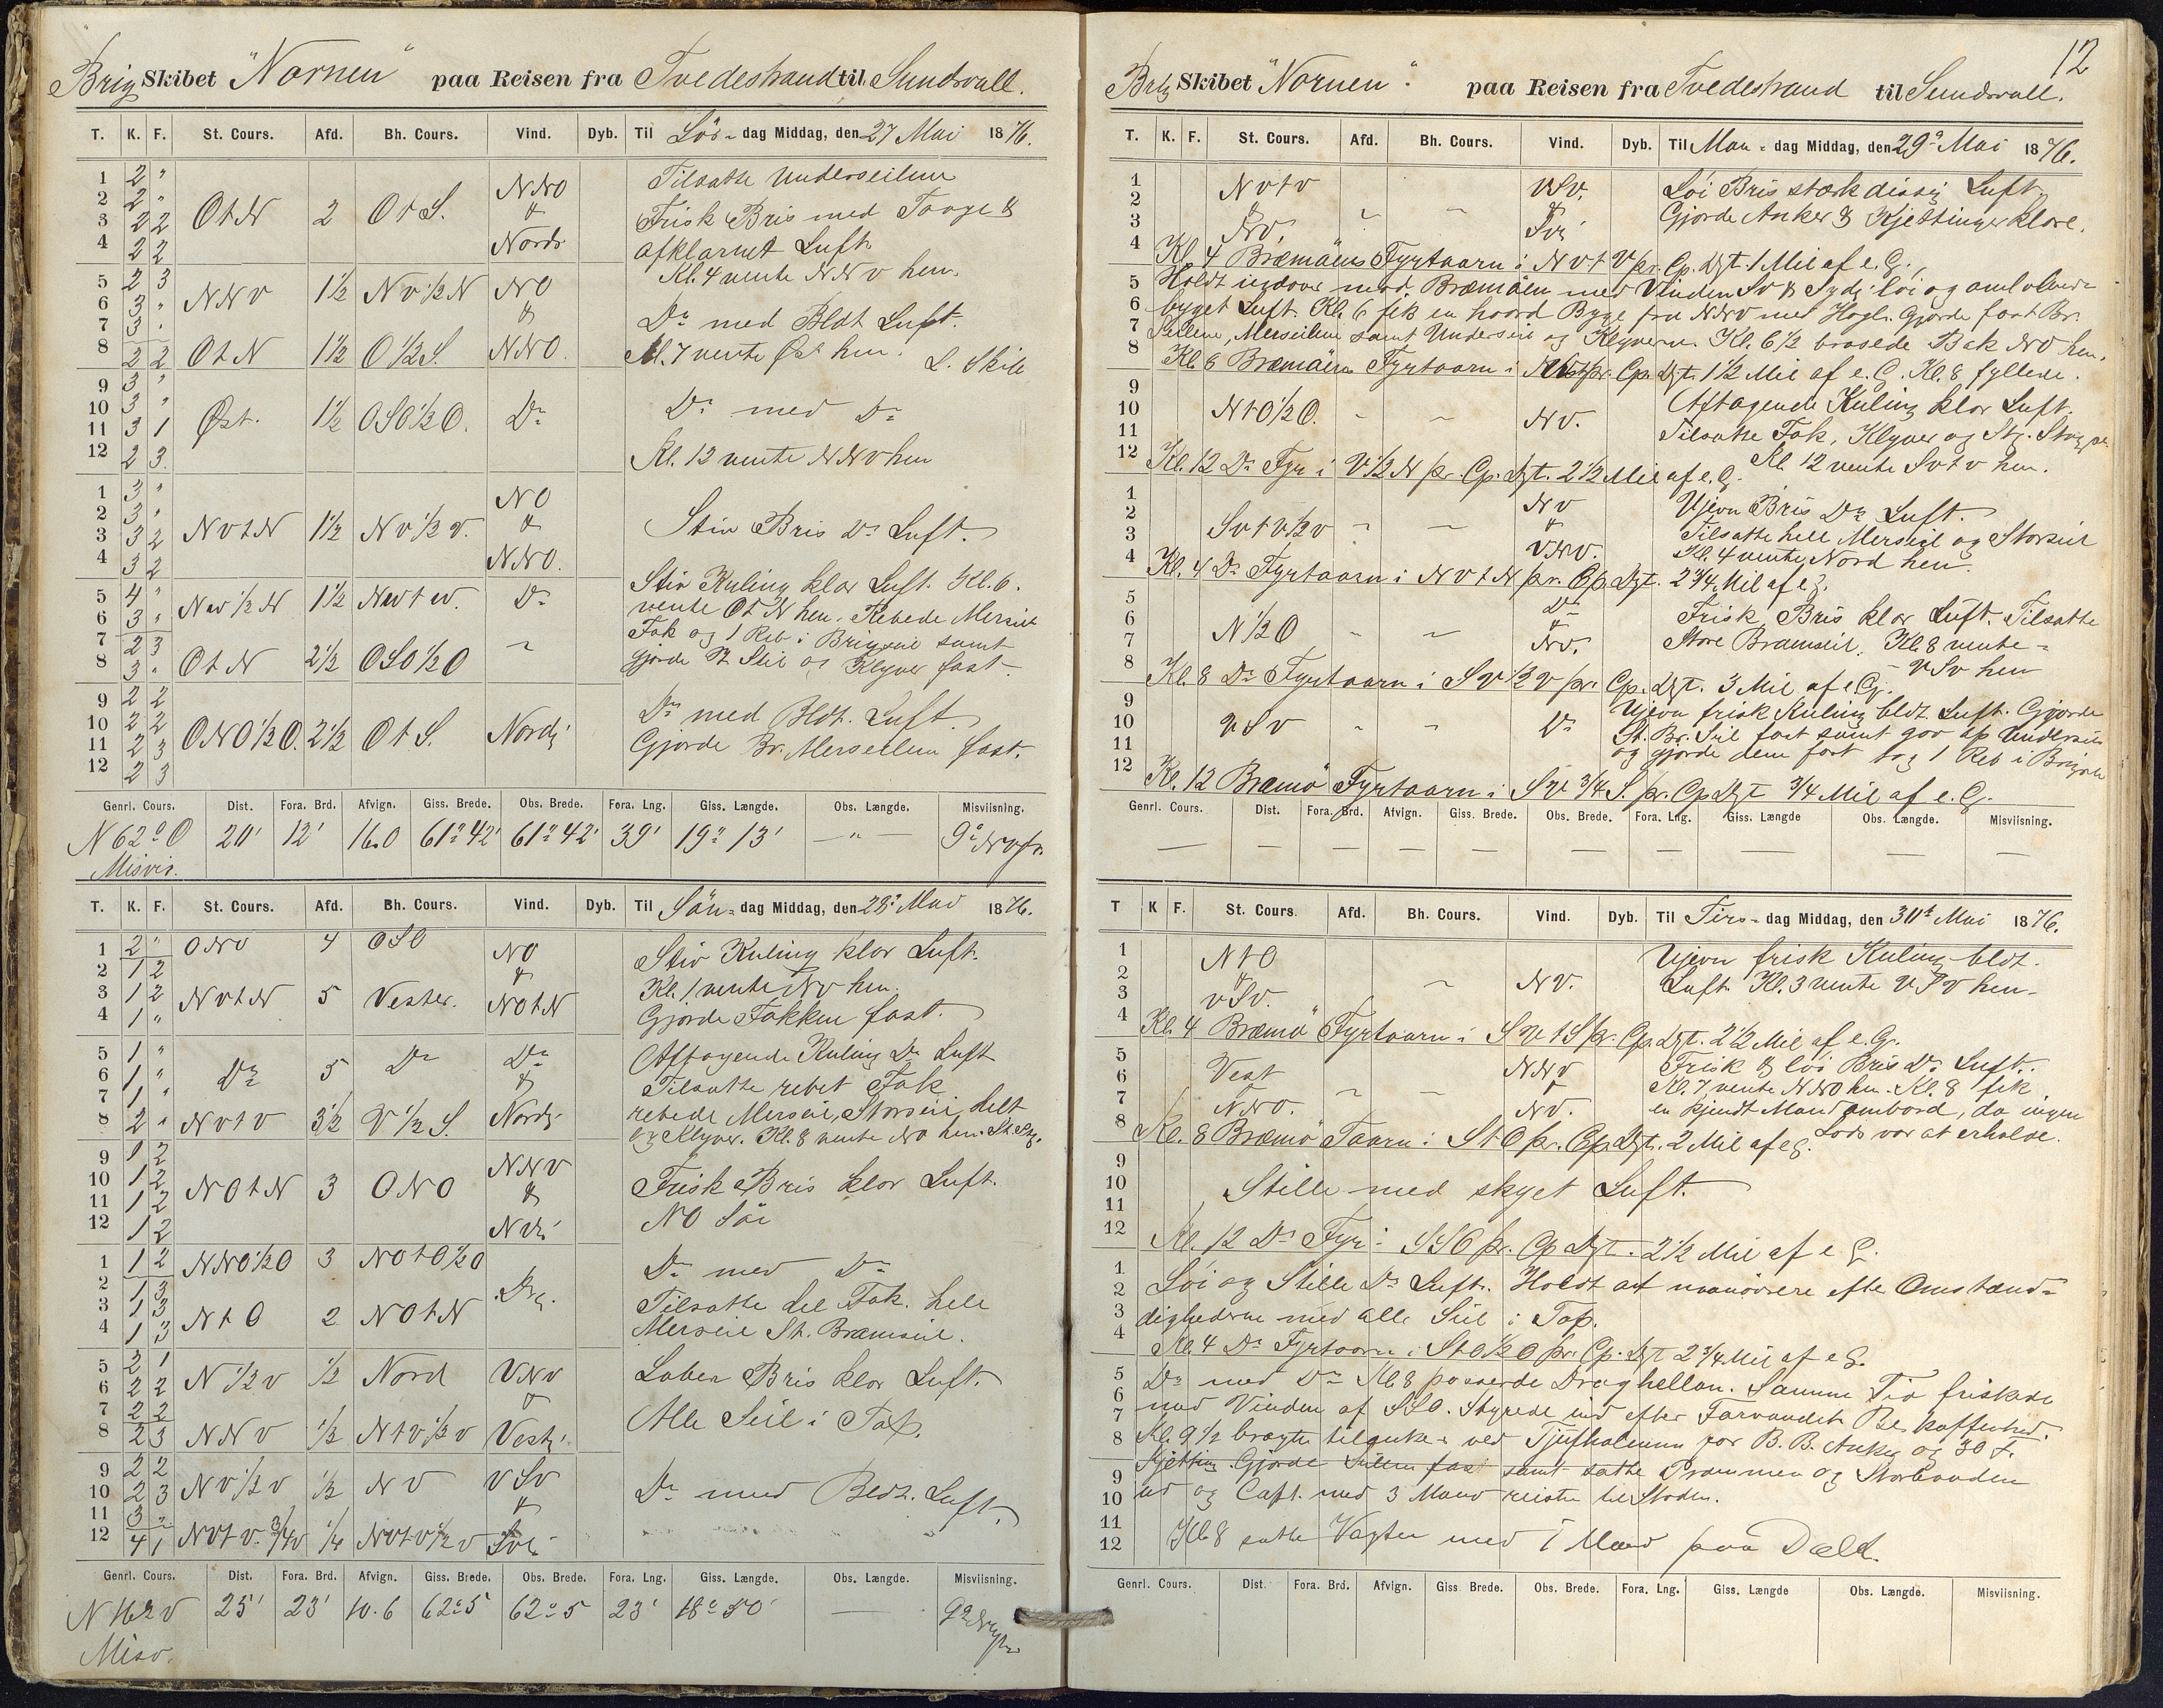 Brig Skibet "Nornen" paa Reisen fra Tvedestrand til Sundsvall.
T. K. F. St. Cours. Afd. Bh. Cours. Vind. Dyb. Til Lös-dag Middag, den 27 Mai 1876.
1 2 " NNO Tilsatte Underseilene
2 2 " & Frisk Bris med Taage &
3 2 2 OtN 2 OtS. Nordr afklarnet Luft
4 2 2 Kl. 4 vente NNv hen.
5 2 3 NNV 1½ Nv½N NO
6 3 " & Do med Bldt Luft.
7 3 "
8 2 2 OtN 1½ O½S. NNO. Kl. 7 vente Øst hen. L. Skib
9 3 "
10 3 " Øst. 1½ OSO½O. Do Do med Do
11 3 1
12 2 3 Kl. 12 vente NNv hen
1 3 " NO
2 3 " &
3 3 2 NvtN 1½ Nv½v. Stiv Bris Do Luft.
4 3 2 NNO.
5 4 " Nv½N 1½ Nvtv. Do Stiv Kuling klar Luft. Kl. 6.
6 3 " vente OtN hen. Rebede Merseil
7 2 3 Fok og 1 Reb i Brigseil samt
8 3 " OtN 2½ OSO½O gjorde St. Seil og Klyver fast.
9 2 2
10 2 2 ONO½O. 2½ OtS. Nordr Do med Bldt. Luft
11 2 3 Gjorde Br. Merseilen fast.
12 2 3
Genrl. Cours. Dist. Fora. Brd. Afvign. Giss. Brede. Obs. Brede. Fora. Lng. Giss. Længde. Obs. Længde. Misviisning.
N 62° O 20' 12' 16.0 61° 42' 61° 42' 39' 19° 13' — " — 9° Nv
Misvis.
T. K. F. St. Cours. Afd. Bh. Cours. Vind. Dyb. Til Sön-dag Middag, den 28de Mai 1876.
1 2 " ONO 4 OSO NO Stiv Kuling klar Luft.
2 1 2 & Kl. 1 vente Nv hen.
3 1 2 NvtN 5 Vester. NOtN Gjorde Fokken fast.
4 1 "
5 1 " Do 5 Do Do Aftagende Kuling Do Luft
6 1 " & Tilsatte rebet Fok
7 1 " rebede Merseil, Storseil, helt
8 2 " Nvtv 3½ V½S. Nordr og Klyver. Kl. 8 vente NO hen.
9 1 2 NNV
10 1 2 NOtN 3 ONO & Frisk Bris klar Luft.
11 1 2 NO Söe
12 1 2
1 1 2 NNO½O 3 NOtO½O Do med Do
2 1 3 Tilsatte hel Fok. hele
3 1 3 NtO 2 NOtN Merseil St. Bramseil.
4 1 3
5 2 1 N½v ½ Nord VNV Laber Bris klar Luft.
6 2 2 &
7 2 2 Alle Seil i Top.
8 2 3 NNV ½ Ntv½v Vestr.
9 2 2 Nv½v ½ NV VSv
10 2 3 & Do med Bldt. Luft.
11 3 "
12 4 1 Nvtv.¾v ¼ Nvtv½v
Genrl. Cours. Dist. Fora. Brd. Afvign. Giss. Brede. Obs. Brede. Fora. Lng. Giss. Længde. Obs. Længde. Misviisning.
25' 23' 10.6 62° 5 62° 5 23' 18° 50' — 9°
Misv.
12
Brig Skibet "Nornen". paa Reisen fra Tvedestrand til Sundsvall.
T. K. F. St. Cours. Afd. Bh. Cours. Vind. Dyb. Til Man-dag Middag, den 29de Mai 1876.
1 Nvtv VSv. Löi Bris stærk dissig Luft.
2 & & Gjorde Anker & Kjettinger klare.
3 NV.
4 Kl. 4 Bræmöens Fyrtaarn i NvtV pr. Cp. Dgt. 1 Mil af e. G.
5 Holdt indover mod Bræmöen med Vinden Sv & Sydr. löi og omlobende
6 byget Luft. Kl. 6 fik en haard Byge fra NNV med Hagl. Gjorde fast Br.
7 Seilene, Merseilene samt Underseil og Klyveren. Kl. 6½ brasede Bak NO hen.
8 Kl. 8 Bræmöens Fyrtaarn i pr. Cp. Dgt. 1½ Mil af e. G. Kl. 8 fyllede.
9 Aftagende Kuling klar Luft.
10 NtO½O. NV. Tilsatte Fok, Klyver og
11 Kl. 12 vente Svtv hen.
12 Kl. 12 Do Fyr i V½N pr. Cp. Dgt. 2½ Mil af e. G.
1 NV Ujevn Bris Do Luft.
2 Svtv½v & Tilsatte hele Merseil og Storseil
3 VNV. Kl. 4 vente Nord hen.
4 Kl. 4 Do Fyrtaarn i NvtN pr. Cp. Dgt. 2¾ Mil af e G.
5 Do Frisk Bris klar Luft. Tilsatte
6 N½O & Store Bramseil. Kl. 8 vente
7 NV. VSv hen
8 Kl. 8 Do Fyrtaarn i SV½V pr. Cp. Dgt. 3 Mil af e G.
9 Ujevn frisk Kuling bldt. Luft. Gjorde
10 VSv Do St. Br. Seil fast samt gav op Underseil
11 og gjorde dem fast tog 1 Reb i Brigseil
12 Kl. 12 Bræmö Fyrtaarn i SV¾S. pr. Cp Dgt ¾ Mil af e. G.
Genrl. Cours. Dist. Fora. Brd. Afvign. Giss. Brede. Obs. Brede. Fora. Lng. Giss. Længde Obs. Længde. Misviisning.
— — — — — — — — — —
T K F. St. Cours. Afd. Bh. Cours. Vind. Dyb. Til Tirs-dag Middag, den 30te Mai 1876.
1 NtO Ujevn frisk Kuling bldt.
2 & NV. Luft. Kl. 3 vente VSV hen.
3 VSv.
4 Kl. 4 Bræmö Fyrtaarn i SVtS pr. Cp. Dgt. 2½ Mil af e. G.
5 Vest NNV Frisk & löi Bris Do Luft.
6 & Kl. 7 vente NNO hen. Kl. 8 fik
7 NNO. NV. en kjendt Mand ombord, da ingen
8 Kl. 8 Bræmö Taarn i StO pr. Cp. Dgt. 2 Mil af e G. Lods var at erholde.
9
10 Stille med skyet Luft.
11
12 Kl. 12 Do Fyr i SSO pr. Cp Dgt. 2½ Mil af e G.
1 Löi og Stille Do Luft. Holdt at manövrere efter Omstænd-
2
3 dighederne med alle Seil i Top.
4 Kl. 4 Do Fyrtaarn i StO½O pr. Cp. Dgt 2¾ Mil af e G.
5 Do med Do Kl 8 passerde Draghellan. Samme Tid friskede
6 med Vinden af SSO. Styrede ind efter Farvandets Beskaffenhed.
7
8 Kl. 9½ bragte tilankers ved Tjufholmen for B. B. Anker og 30 f.
9 Kjetting. Gjorde Seilene fast samt satte Prammen og Storbaaden
10 ud og Capt. med 3 Mand reiste til Staden.
11
12 Kl. 8 satte Vagten med 1 Mand paa Dæk.
Genrl. Cours. Dist. Fora. Brd. Afvign. Giss Brede. Obs. Brede. Fora. Lng. Giss. Længde Obs. Længde. Misviisning.